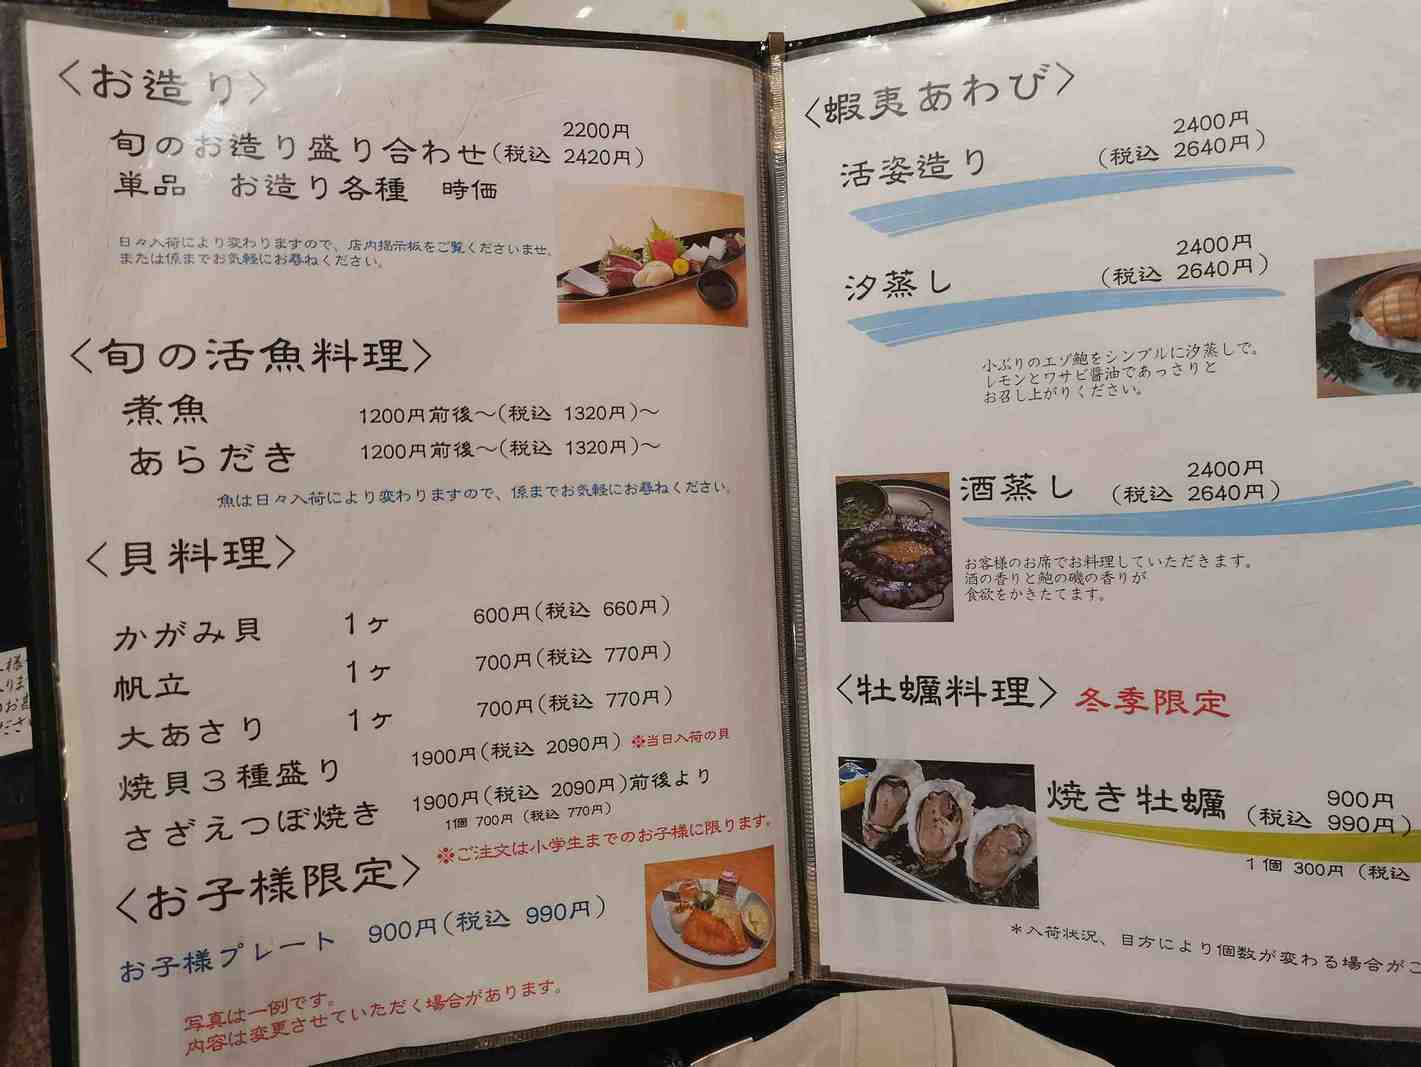 〈お造り〉
旬のお造り盛り合わせ 2200円
(税込 2420円)
単品 お造り各種 時価
日々入荷により変わりますので、店内掲示板をご覧くださいませ。
または係までお気軽にお尋ねください。
〈旬の活魚料理〉
煮魚 1200円前後～(税込 1320円)～
あらだき 1200円前後～(税込 1320円)～
魚は日々入荷により変わりますので、係までお気軽にお尋ねください。
〈貝料理〉
かがみ貝 1ヶ 600円(税込 660円)
帆立 1ヶ 700円(税込 770円)
大あさり 1ヶ 700円(税込 770円)
焼貝３種盛り 1900円(税込 2090円) ※当日入荷の貝
さざえつぼ焼き 1900円(税込 2090円)前後より
1個 700円 (税込 770円)
〈お子様限定〉 ※ご注文は小学生までのお子様に限ります。
お子様プレート 900円(税込 990円)
写真は一例です。
内容は変更させていただく場合があります。
〈蝦夷あわび〉
活姿造り 2400円
(税込 2640円)
汐蒸し 2400円
(税込 2640円)
小ぶりのエゾ鮑をシンプルに汐蒸しで。
レモンとワサビ醤油であっさりと
お召し上がりください。
酒蒸し 2400円
(税込 2640円)
お客様のお席でお料理していただきます。
酒の香りと鮑の磯の香りが
食欲をかきたてます。
〈牡蠣料理〉 冬季限定
焼き牡蠣 900円
(税込 990円)
1個 300円 (税込
＊入荷状況、目方により個数が変わる場合がご